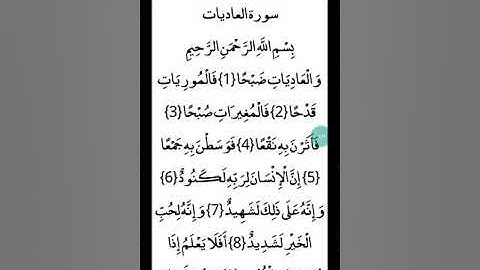 سورة العاديات
بِسْمِ اللَّهِ الرَّحْمَنِ الرَّحِيمِ
وَالْعَادِيَاتِ ضَبْحًا {1} فَالْمُورِيَاتِ
قَدْحًا {2} فَالْمُغِيرَاتِ صُبْحًا {3}
فَأَثَرْنَ بِهِ نَقْعًا {4} فَوَسَطْنَ بِهِ جَمْعًا
{5} إِنَّ الْإِنْسَانَ لِرَبِّهِ لَكَنُودٌ {6}
وَإِنَّهُ عَلَى ذَلِكَ لَشَهِيدٌ {7} وَإِنَّهُ لِحُبِّ
الْخَيْرِ لَشَدِيدٌ {8} أَفَلَا يَعْلَمُ إِذَا